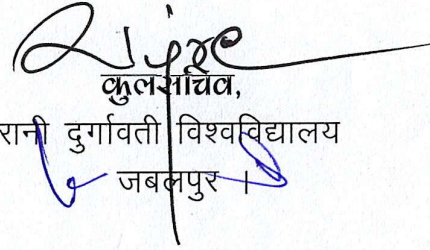 कुलसचिव,
रानी दुर्गावती विश्वविद्यालय
जबलपुर ।